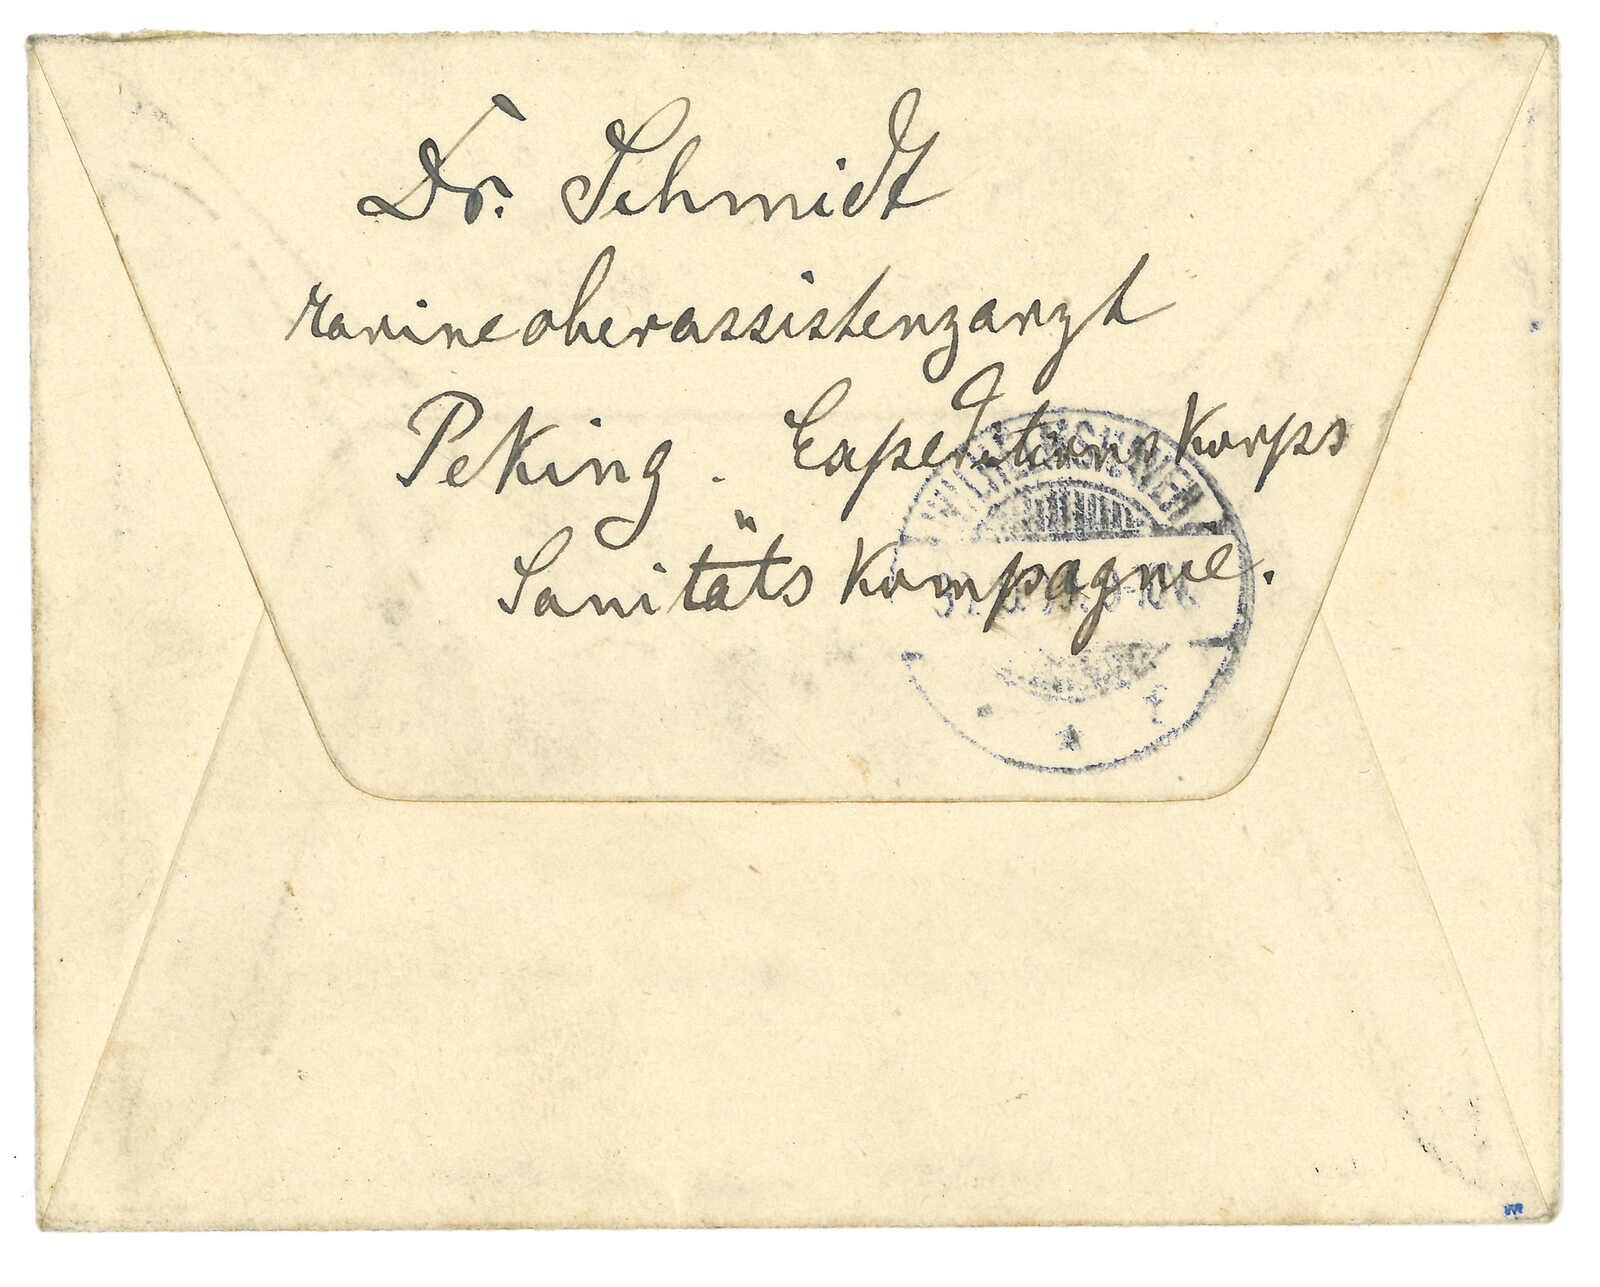 Dr. Schmidt
Marineoberassistenzarzt
Peking. Expeditionskorps
Sanitäts Kompagnie.
WILHELMSHAVEN